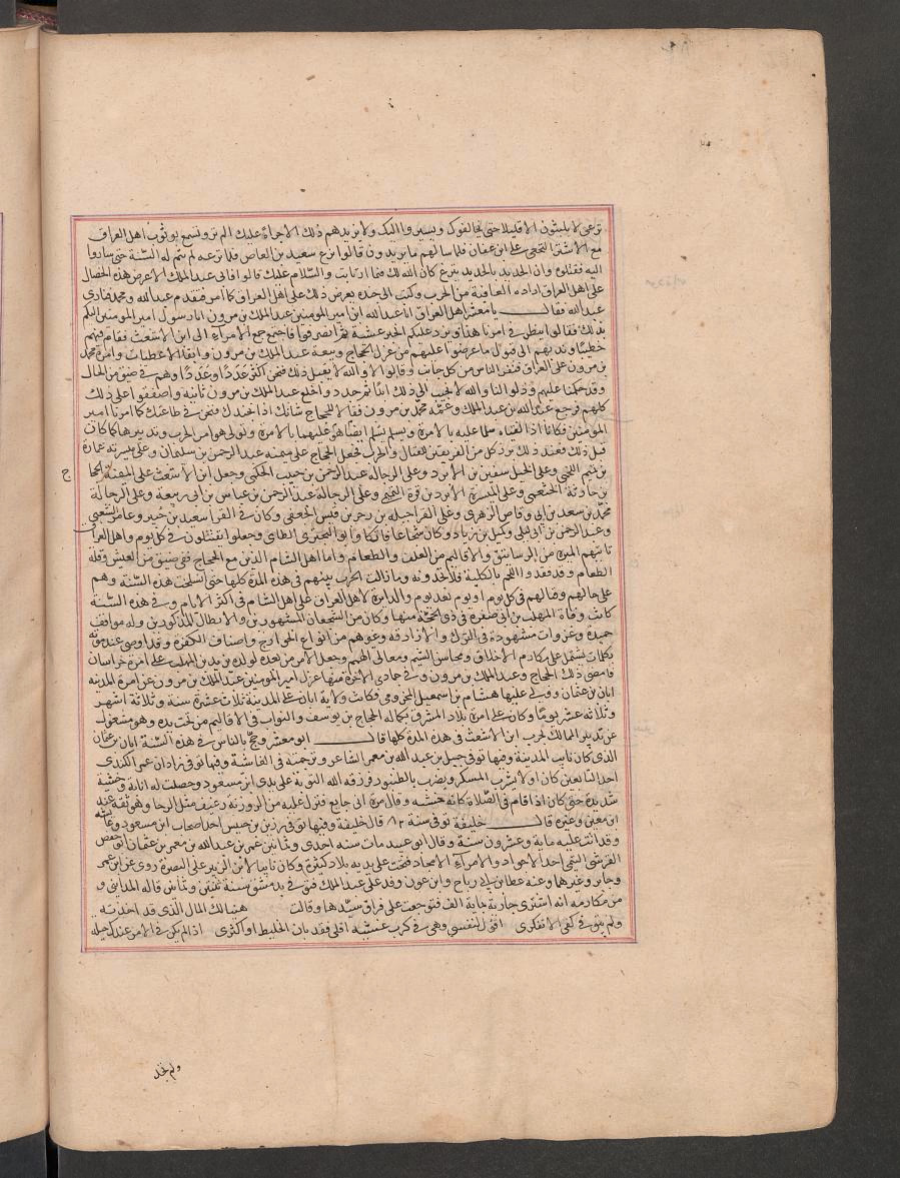 نزعي لا يلبثون الا قليلا حتى يخالفوك ويسيروا اليك ولا يزيدهم ذلك الا جراة عليك الم تر وتسمع بوثوب اهل العراق
مع الاشتر النخعي على ابن عفان فلما سالهم ما يريدون قالوا نزع سعيد بن العاص فلما نزعه لم يتم له السنة حتى ساروا
اليه فقتلوه وان الحديد بالحديد يقرع كان الله لك فيما ارتايت والسلام عليك قالوا فابى عبد الملك الا عرض هذه الخصال
على اهل العراق ارادة العافية من الحرب وكتب الى جده بعرض ذلك على اهل العراق كما امر فتقدم عبد الله ومحمد فنادى
عبد الله فقال يا معشر اهل العراق انا عبد الله ابن امير المومنين عبد الملك بن مرون انا رسول امير المومنين اليكم
بذلك فقالوا ننظر في امرنا هذا ونرد عليكم الخبر عشية ثم انصرفوا فاجتمع جميع الامراء الى ابن الاشعث فقام فيهم
خطيبا وندبهم الى قبول ما عرضوا عليهم من عزل الحجاج وبيعة عبد الملك بن مرون وابقاء الاعطيات وامرة محمد
بن مرون على العراق فنفر الناس من كل جانب وقالوا لا والله لا نقبل ذلك نحن اكثر عددا وعددا وهم في ضيق من الحال
وقد حكمنا عليهم وذلوا لنا والله لا نجيب الى ذلك ابدا ثم جددوا خلع عبد الملك بن مرون ثانية واصفقوا على ذلك
كلهم فرجع عبد الله بن عبد الملك وعمه محمد بن مرون فقالا للحجاج شانك اذا بجندك فنحن في طاعتك كما امرنا امير
المومنين فكانا اذا لقياه سلما عليه بالامرة ويسلم ايضا هو عليهما بالامرة وتولى هو امر الحرب وتدبيرها كما كان
قبل ذلك فعند ذلك برز كل من الفريقين للقتال والحرب فجعل الحجاج على ميمنه عبد الرحمن بن سليمان وعلى ميسرته عمارة
بن تميم اللخمي وعلى الخيل سفين بن الابرد وعلى الرجالة عبد الرحمن بن حبيب الحكمي وجعل ابن الاشعث على الميمنة الحجا
ج
بن حارثة الخثعمي وعلى الميسرة الابرد بن قرة التميمي وعلى الرجالة عبد الرحمن بن عباس بن ابي ربيعة وعلى الرجالة
محمد بن سعد بن ابي وقاص الزهري وعلى القرا جبلة بن زحر بن قيس الجعفي وكان في القرا سعيد بن جبير وعامر الشعبي
وعبد الرحمن بن ابي ليلى وكميل بن زياد وكان شجاعا فاتكا وابو البختري الطاي وجعلوا يقتتلون في كل يوم واهل العراق
تاتيهم الميرة من الرساتيق والاقاليم من العلف والطعام واما اهل الشام الذين مع الحجاج ففي ضيق من العيش وقلة
الطعام وقد فقدوا اللحم بالكلية فلا يجدونه وما زالت الحرب بينهم في هذه المدة كلها حتى انسلخت هذه السنة وهم
على حالهم وقتالهم في كل يوم او يوم بعد يوم والدائرة لاهل العراق على اهل الشام في اكثر الايام وفي هذه السنة
كانت وفاة المهلب بن ابي صفرة في ذي الحجة منها وكان من الشجعان المشهورين والابطال المذكورين وله مواقف
حميدة وغزوات مشهودة في الترك والازارقة وغيرهم من انواع الخوارج واصناف الكفرة وقد اوصى عند موته
بكلمات يشتمل على مكارم الاخلاق ومحاسن الشيم ومعالي الهمم وجعل الامر من بعده لولده يزيد بن المهلب على امرة خراسان
فامضى ذلك الحجاج وعبد الملك بن مرون وفي جمادي الاخرة منها عزل امير المومنين عبد الملك بن مرون عن امرة المدينة
ابان بن عثمان وولى عليها هشام بن اسمعيل المخزومي وكانت ولاية ابان على المدينة ثلاث عشرة سنة وثلاثة اشهر
وثلاثة عشر يوما وكان على امرة بلاد المشرق بكماله الحجاج بن يوسف والنواب في الاقاليم من تحت يده وهو مشغول
عن تدبير الممالك لحرب ابن الاشعث في هذه المدة كلها قال ابو معشر وحج بالناس في هذه السنة ابان بن عثمان
الذي كان نايب المدينة وفيها توفي جميل بن عبد الله بن معمر الشاعر وترجمته في الفاشية وفيها توفي زاذان عمر الكندي
احد التابعين كان اولا يشرب المسكر ويضرب بالطنبور فرزقه الله التوبة على يدي ابن مسعود وحصلت له انابة وخشية
شديدة حتى كان اذا قام في الصلاة كانه خشبة وقال مرة اني جايع فنزل عليه من الروزنة رغيف مثل الرحا وهو ثقة عند
ابن معين وغيره قال خليفة توفي سنة ٨٢ قال خليفة وفيها توفي زر بن حبيش احد اصحاب ابن مسعود وعائشة
وقد اتت عليه ماية وعشرون سنة وقال ابو عبيد مات سنة احدى وثمانين عمر بن عبد الله بن معمر بن عثمان ابو حفص
القرشي التيمي احد الاجواد والامراء الامجاد فتحت على يديه بلاد كثيرة وكان نايبا لابن الزبير على البصرة روى عن ابن عمر
وجابر وغيرهما وعنه عطا بن ابي رباح وابن عون وفد على عبد الملك فتوفي بدمشق سنة ثنتين وثمانين قاله المدايني و
من مكارمه انه اشترى جارية بماية الف فتوجعت على فراق سيدها وقالت هنيا لك المال الذي قد اخذته
ولم يبق في كفي الا تفكري اقول لنفسي وهي في كرب عيشة اقلي فقد بان الخليط او اكثري اذا لم يكن في الامر عندك حيلة
ولم تجد